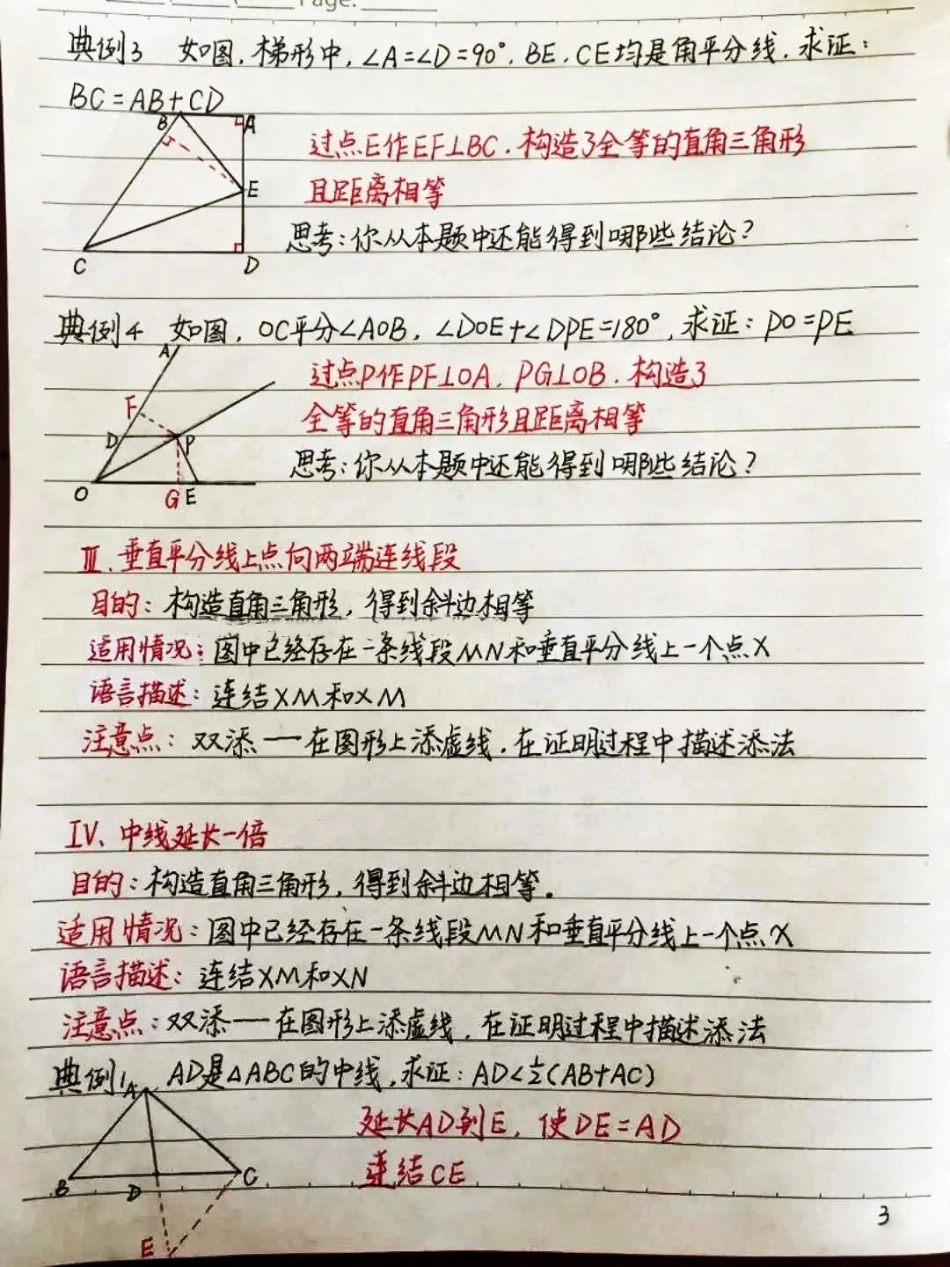 Page:
典例3 如图,梯形中,∠A=∠D=90°,BE,CE均是角平分线,求证:
BC=AB+CD
B A
过点E作EF⊥BC,构造了全等的直角三角形
E
且距离相等
思考:你从本题中还能得到哪些结论?
C D
典例4 如图,OC平分∠AOB,∠DOE+∠DPE=180°,求证:PD=PE
A
过点P作PF⊥OA,PG⊥OB,构造了
F
全等的直角三角形且距离相等
D P
思考:你从本题中还能得到哪些结论?
O G E
Ⅲ、垂直平分线上点向两端连线段
目的:构造直角三角形,得到斜边相等
适用情况:图中已经存在一条线段MN和垂直平分线上一个点X
语言描述:连结XM和XM
注意点:双添——在图形上添虚线,在证明过程中描述添法
Ⅳ、中线延长一倍
目的:构造直角三角形,得到斜边相等。
适用情况:图中已经存在一条线段MN和垂直平分线上一个点X
语言描述:连结XM和XN
注意点:双添——在图形上添虚线,在证明过程中描述添法
典例1 AD是△ABC的中线,求证:AD<½(AB+AC)
A
延长AD到E,使DE=AD
连结CE
B D C
3
E